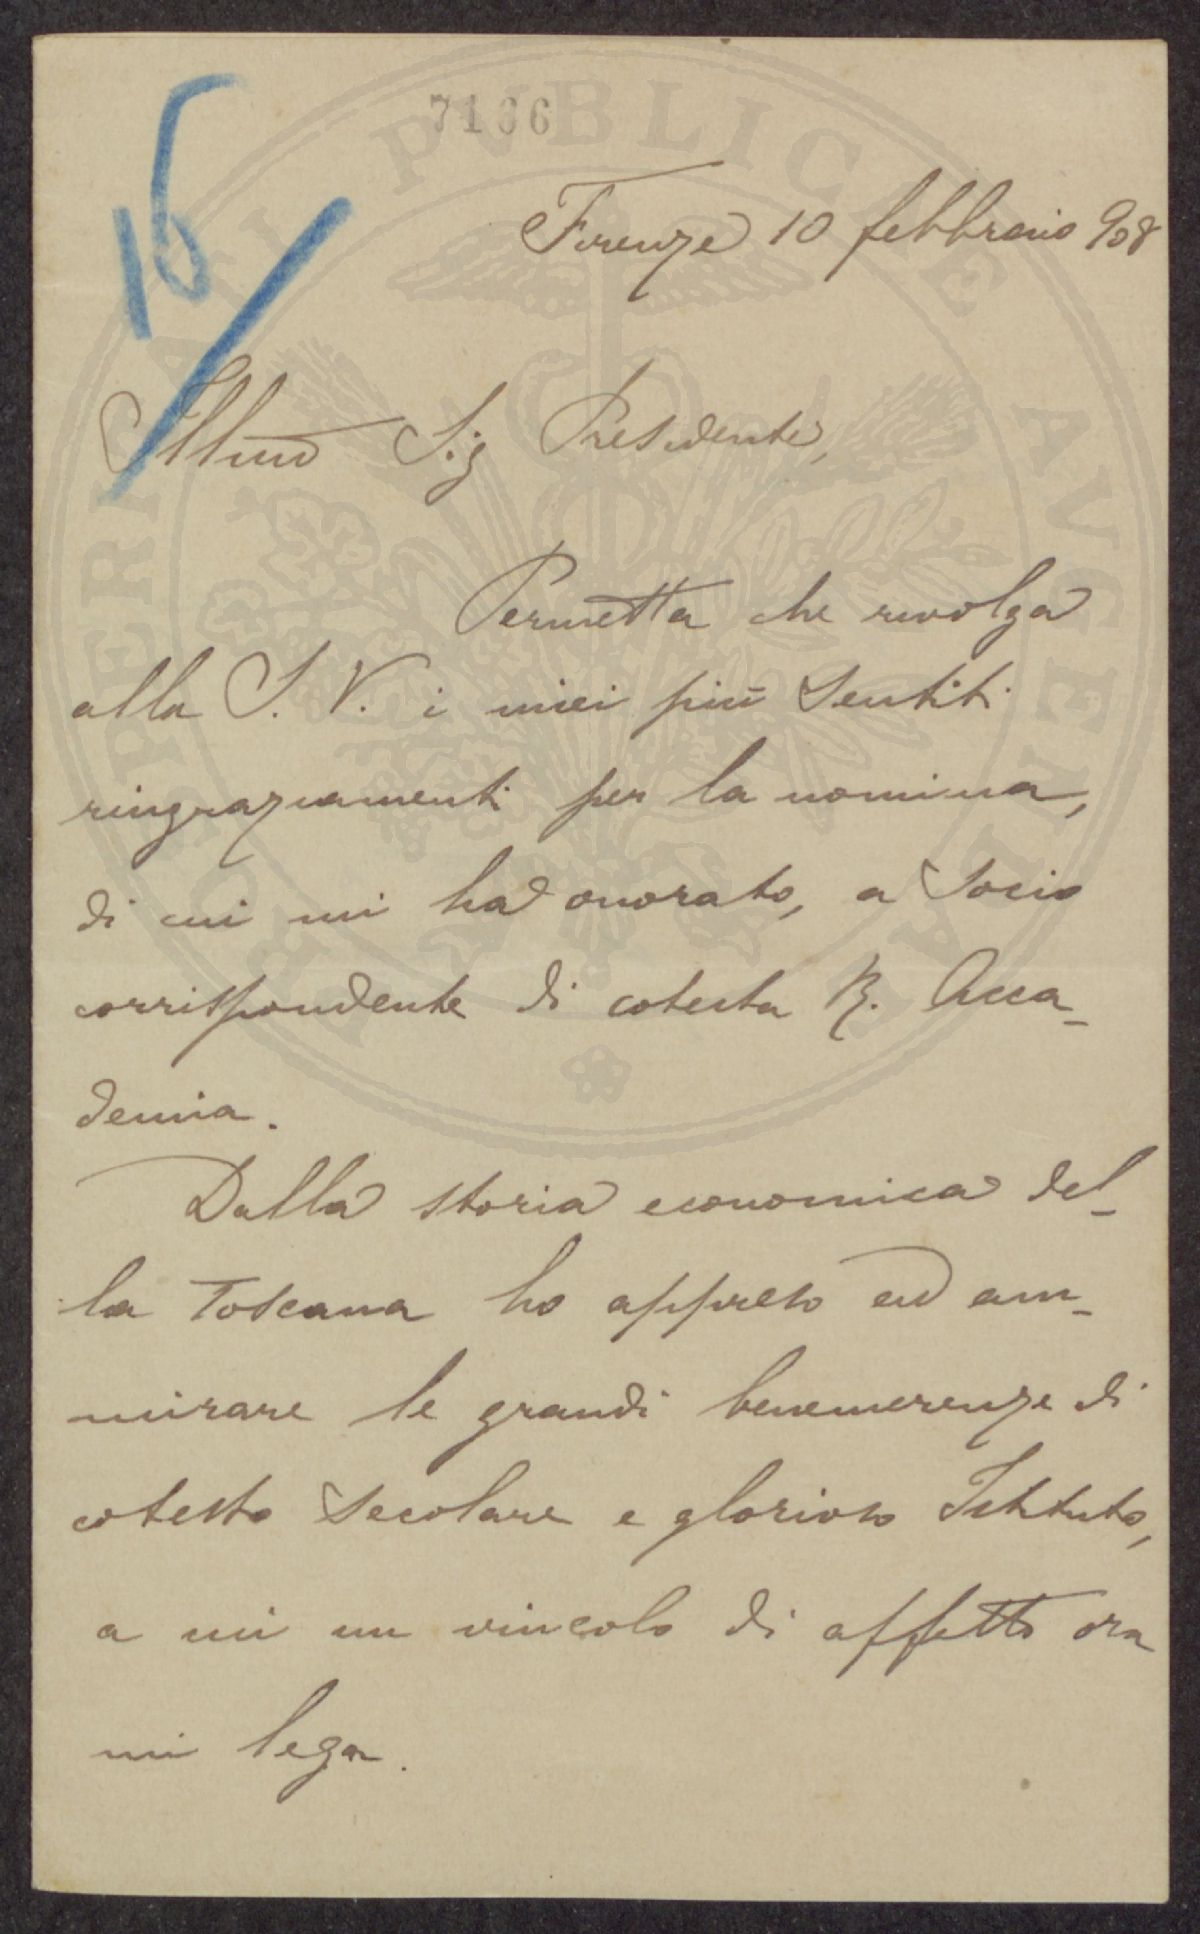 7166
16
Firenze 10 febbraio 908
Illmo Sig Presidente,
Permetta che rivolga
alla S. V. i miei più sentiti
ringraziamenti per la nomina,
di cui mi ha onorato, a Socio
corrispondente di cotesta R. Acca-
demia.
Dalla storia economica del-
la Toscana ho appreso ad am-
mirare le grandi benemerenze di
cotesto secolare e glorioso Istituto,
a cui un vincolo di affetto ora
mi lega.